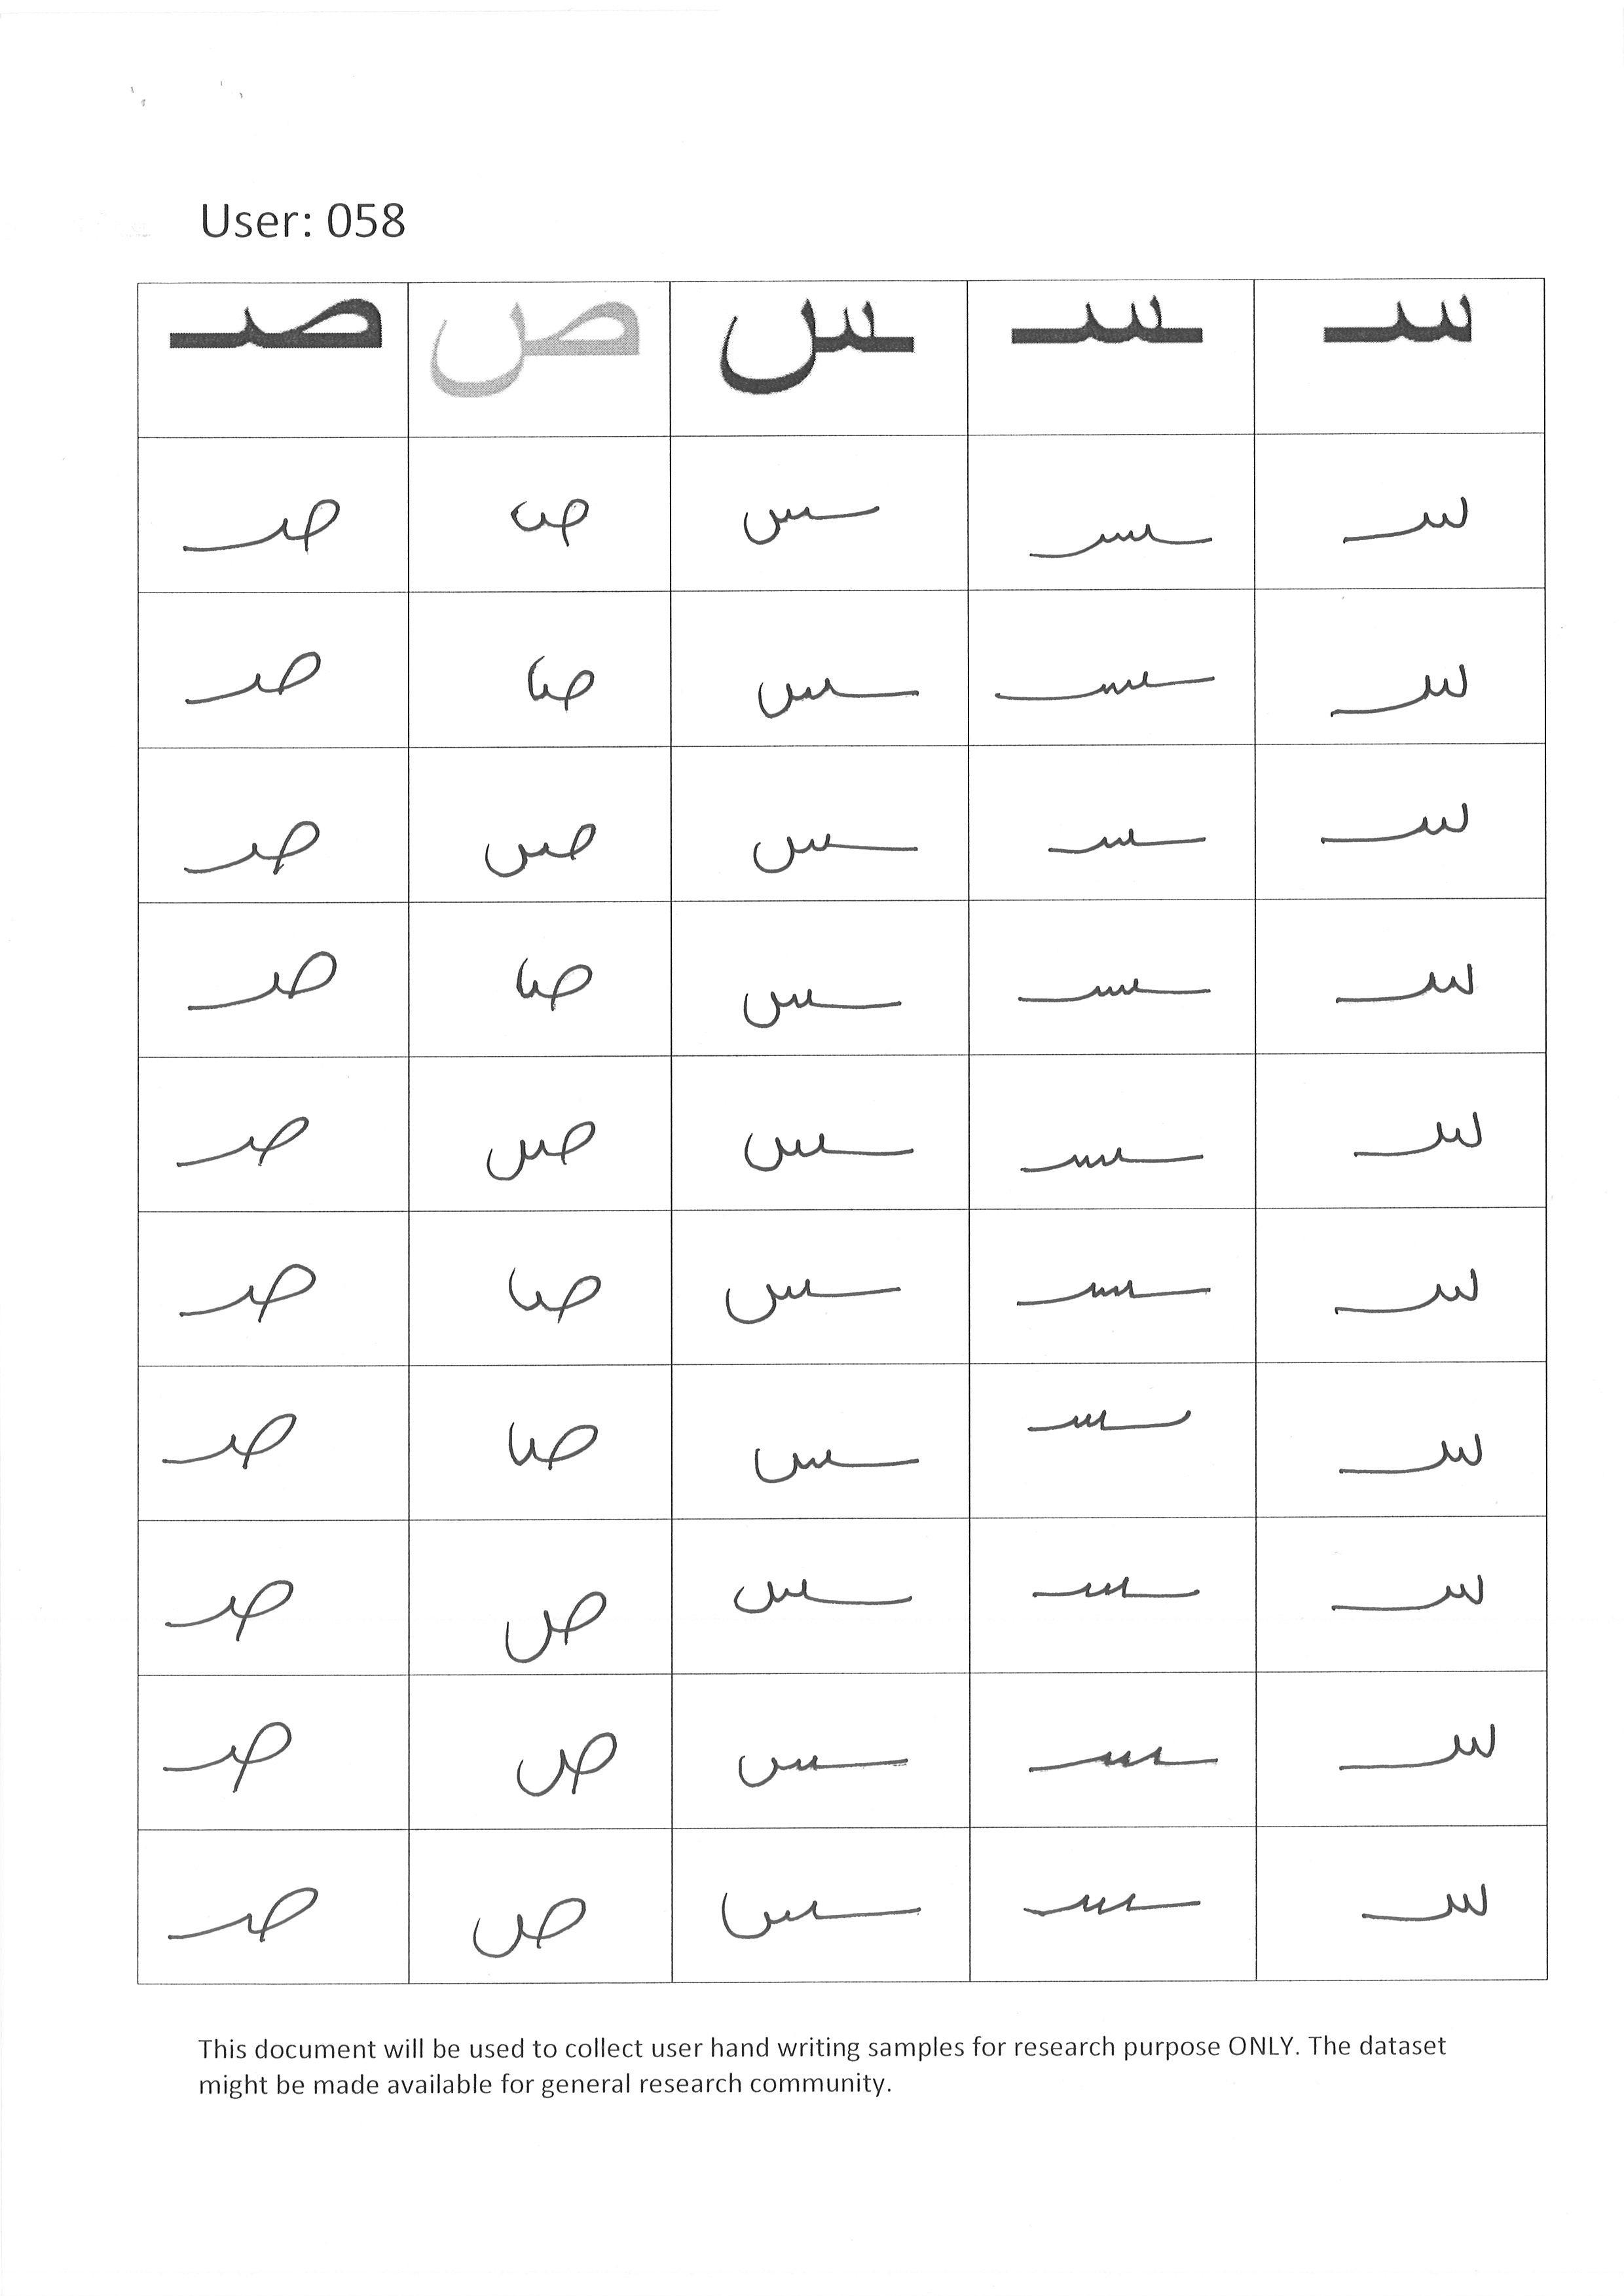 User: 058
سـ ـسـ ـس ص صـ
سـ ـسـ ـس ص صـ
سـ ـسـ ـس ص صـ
سـ ـسـ ـس ص صـ
سـ ـسـ ـس ص صـ
سـ ـسـ ـس ص صـ
سـ ـسـ ـس ص صـ
سـ ـسـ ـس ص صـ
سـ ـسـ ـس ص صـ
سـ ـسـ ـس ص صـ
سـ ـسـ ـس ص صـ
This document will be used to collect user hand writing samples for research purpose ONLY. The dataset
might be made available for general research community.